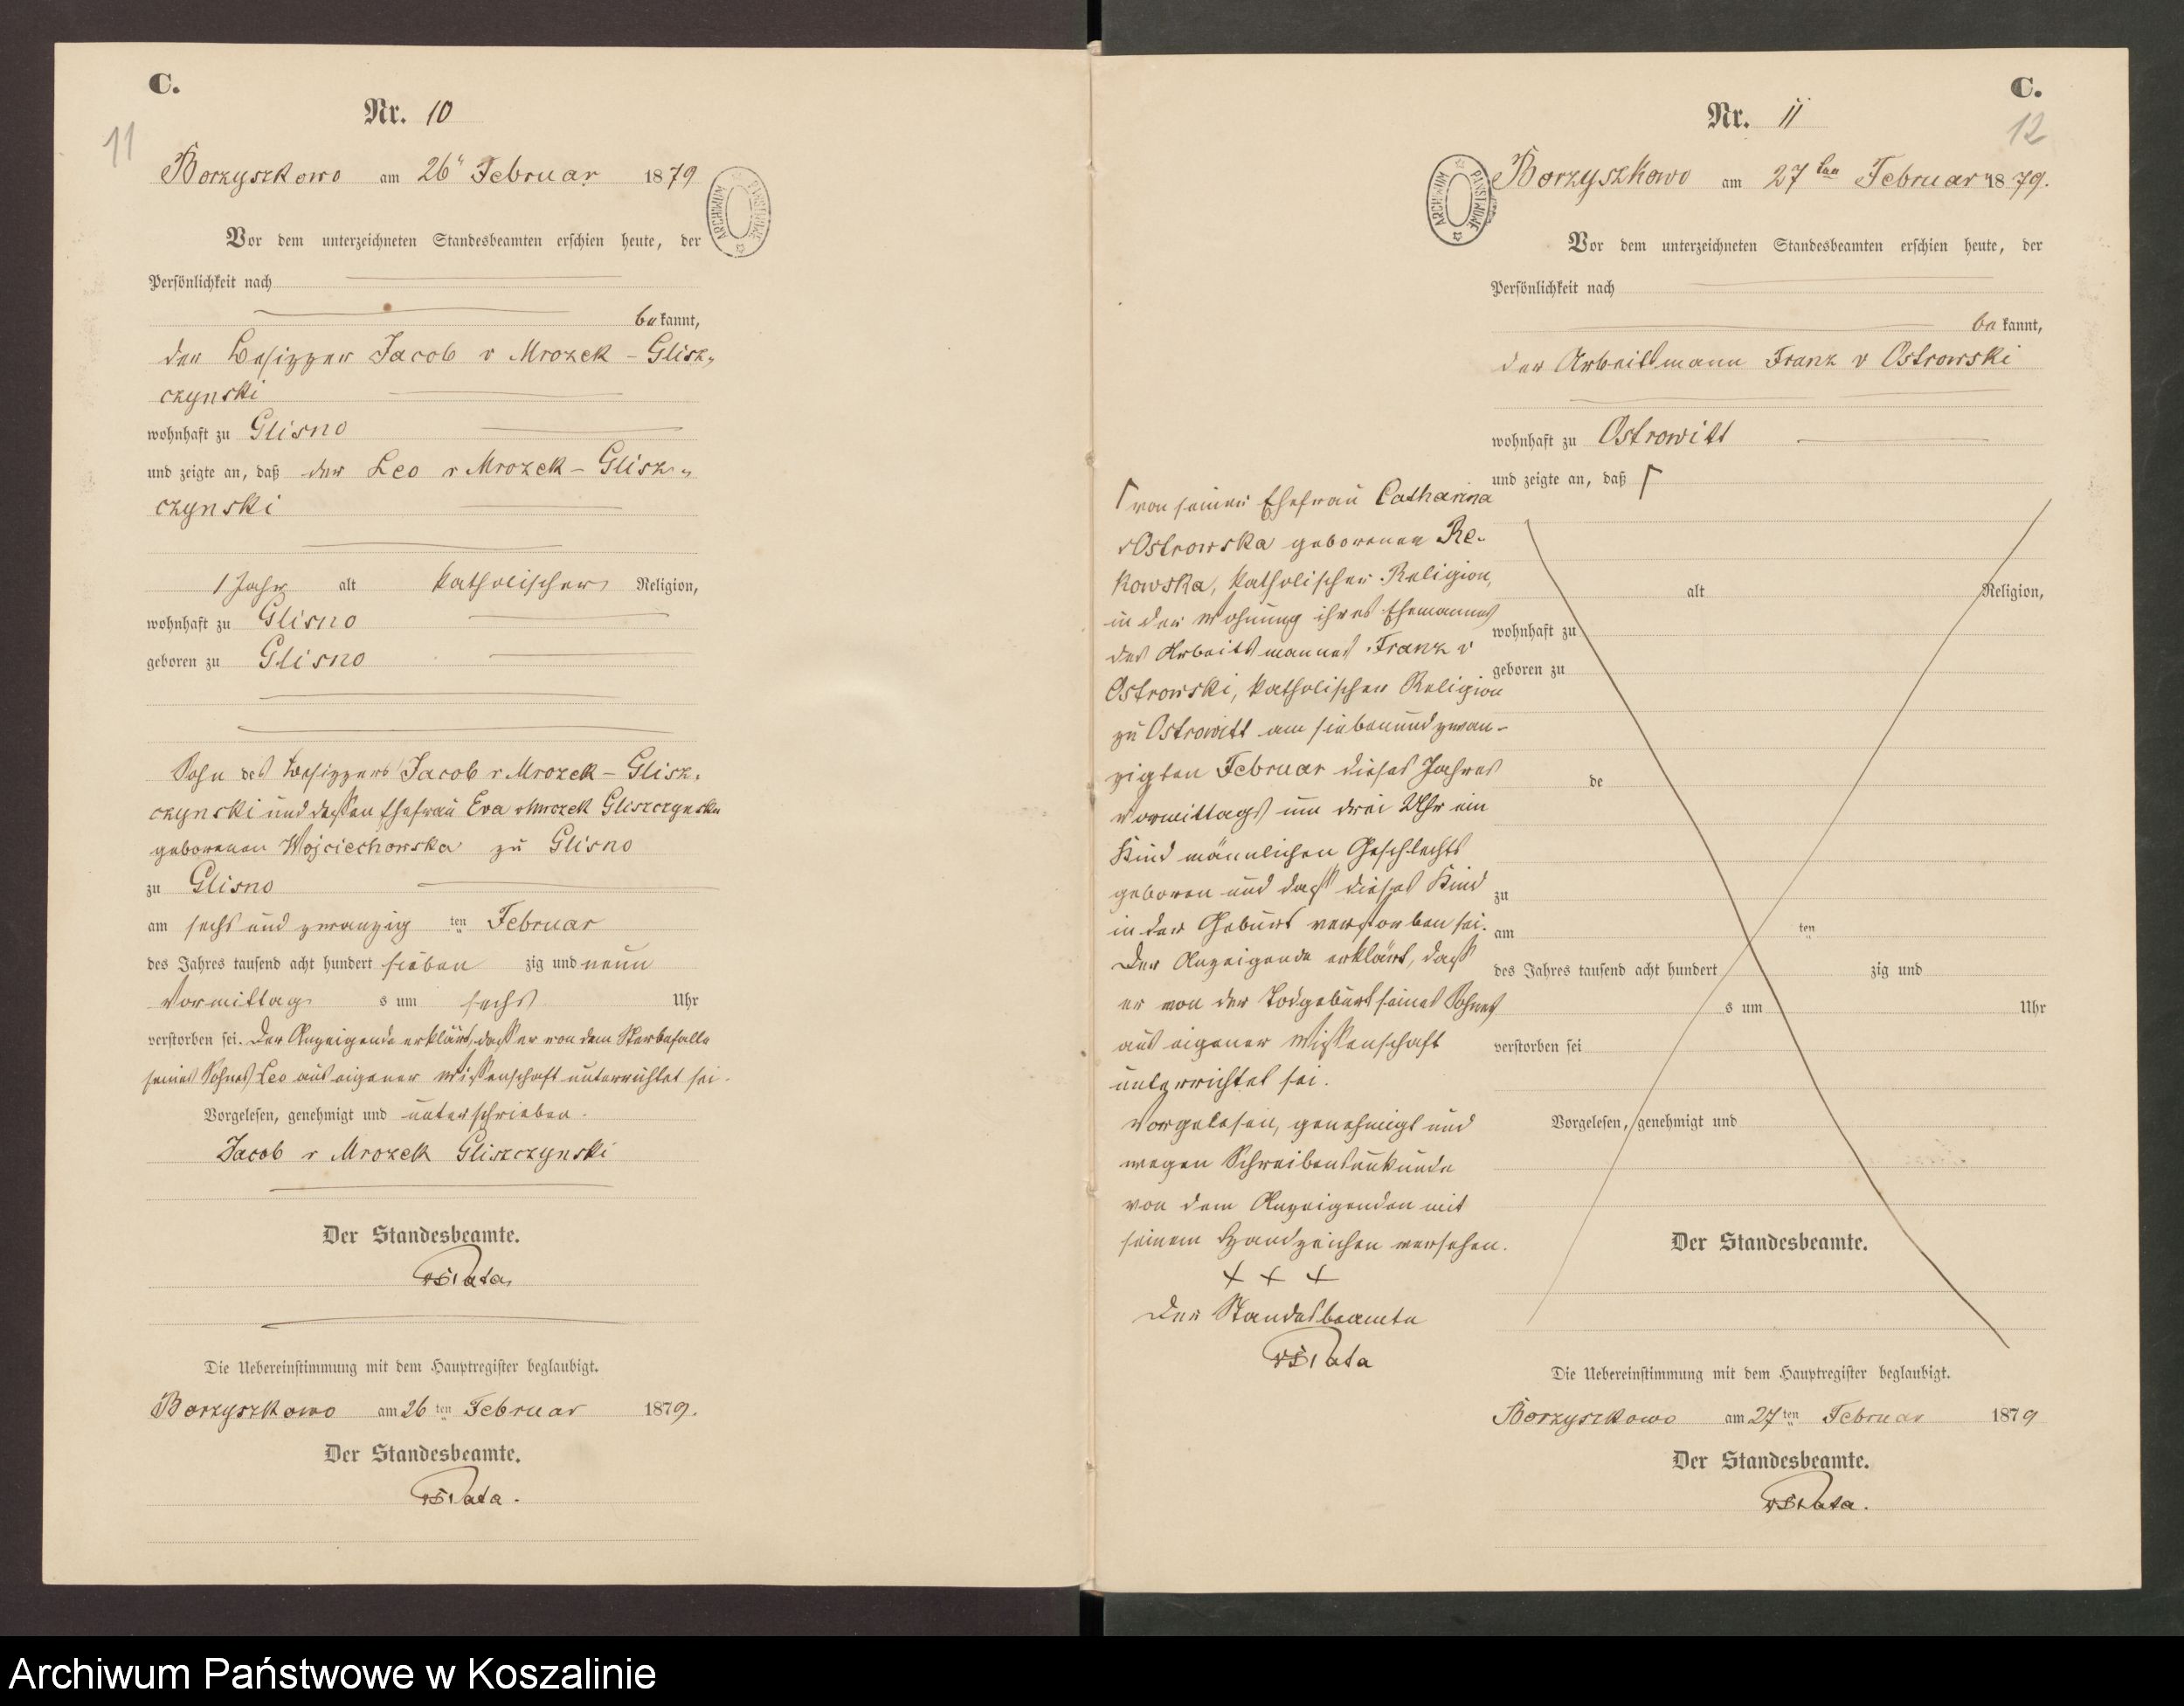 C.
Nr. 10
11
Borzyszkowo am 26" Februar 1879
ARCHIWUM PAŃSTWOWE
Vor dem unterzeichneten Standesbeamten erschien heute, der
Persönlichkeit nach
bekannt,
der Besitzer Jacob v Mrozek - Glisz„
czynski
wohnhaft zu Glisno
und zeigte an, daß der Leo v Mrozek - Glisz„
czynski
1 Jahr alt katholischer Religion,
wohnhaft zu Glisno
geboren zu Glisno
Sohn des Besitzers Jacob v Mrozek - Glisz„
czynski und dessen Ehefrau Eva v Mrozek Gliszczynska
geborenen Wojciechowska zu Glisno
zu Glisno
am sechs und zwanzig ten Februar
des Jahres tausend acht hundert sieben zig und neun
Vormittag s um sechs Uhr
verstorben sei. Der Anzeigende erklärt, dass er von dem Sterbefalle
seines Sohnes Leo aus eigener Wissenschaft unterrichtet sei.
Vorgelesen, genehmigt und unterschrieben.
Jacob v Mrozek Gliszczynski
Der Standesbeamte.
Die Uebereinstimmung mit dem Hauptregister beglaubigt.
Borzyszkowo am 26 ten Februar 1879.
Der Standesbeamte.
C.
Nr. 11
12
Borzyszkowo am 27 ten Februar 1879.
ARCHIWUM PAŃSTWOWE
Vor dem unterzeichneten Standesbeamten erschien heute, der
Persönlichkeit nach
bekannt,
der Arbeitsmann Franz v Ostrowski
wohnhaft zu Ostrowitt
und zeigte an, daß ⌈
⌈ von seiner Ehefrau Catharina
v Ostrowska geborenen Re-
kowska, katholischer Religion,
in der Wohnung ihres Ehemannes
des Arbeitsmannes Franz v
Ostrowski, katholischer Religion
zu Ostrowitt am siebenundzwan-
zigten Februar dieses Jahres
Vormittags um drei Uhr ein
Kind männlichen Geschlechts
geboren und dass dieses Kind
in der Geburt verstorben sei.
Der Anzeigende erklärt, dass
er von der Todgeburt seines Sohnes
aus eigener Wissenschaft
unterrichtet sei.
Vorgelesen, genehmigt und
wegen Schreibensunkunde
von dem Anzeigenden mit
seinem Handzeichen versehen.
+ + +
Der Standesbeamte
alt Religion,
wohnhaft zu
geboren zu
de
zu
am ten
des Jahres tausend acht hundert zig und
s um Uhr
verstorben sei
Vorgelesen, genehmigt und
Der Standesbeamte.
Die Uebereinstimmung mit dem Hauptregister beglaubigt.
Borzyszkowo am 27 ten Februar 1879
Der Standesbeamte.
Archiwum Państwowe w Koszalinie